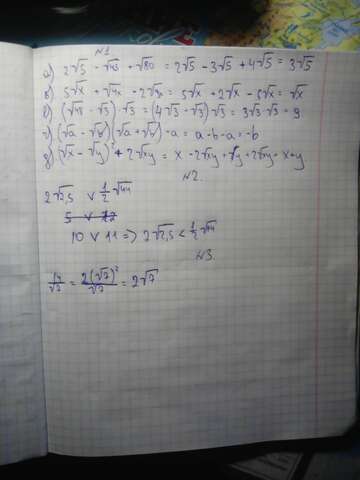 №1
а) 2√5 - √45 + √80 = 2√5 - 3√5 + 4√5 = 3√5
б) 5√x + √4x - 2√9x = 5√x + 2√x - 6√x = √x
в) (√48 - √3)·√3 = (4√3 - √3)√3 = 3√3·√3 = 9
г) (√a - √b)(√a + √b) - a = a - b - a = -b
д) (√x - √y)² + 2√xy = x - 2√xy + y + 2√xy = x + y
№2
2√2,5 ∨ 1/2 √44
10 ∨ 11 => 2√2,5 < 1/2 √44
№3
14/√7 = 2(√7)²/√7 = 2√7